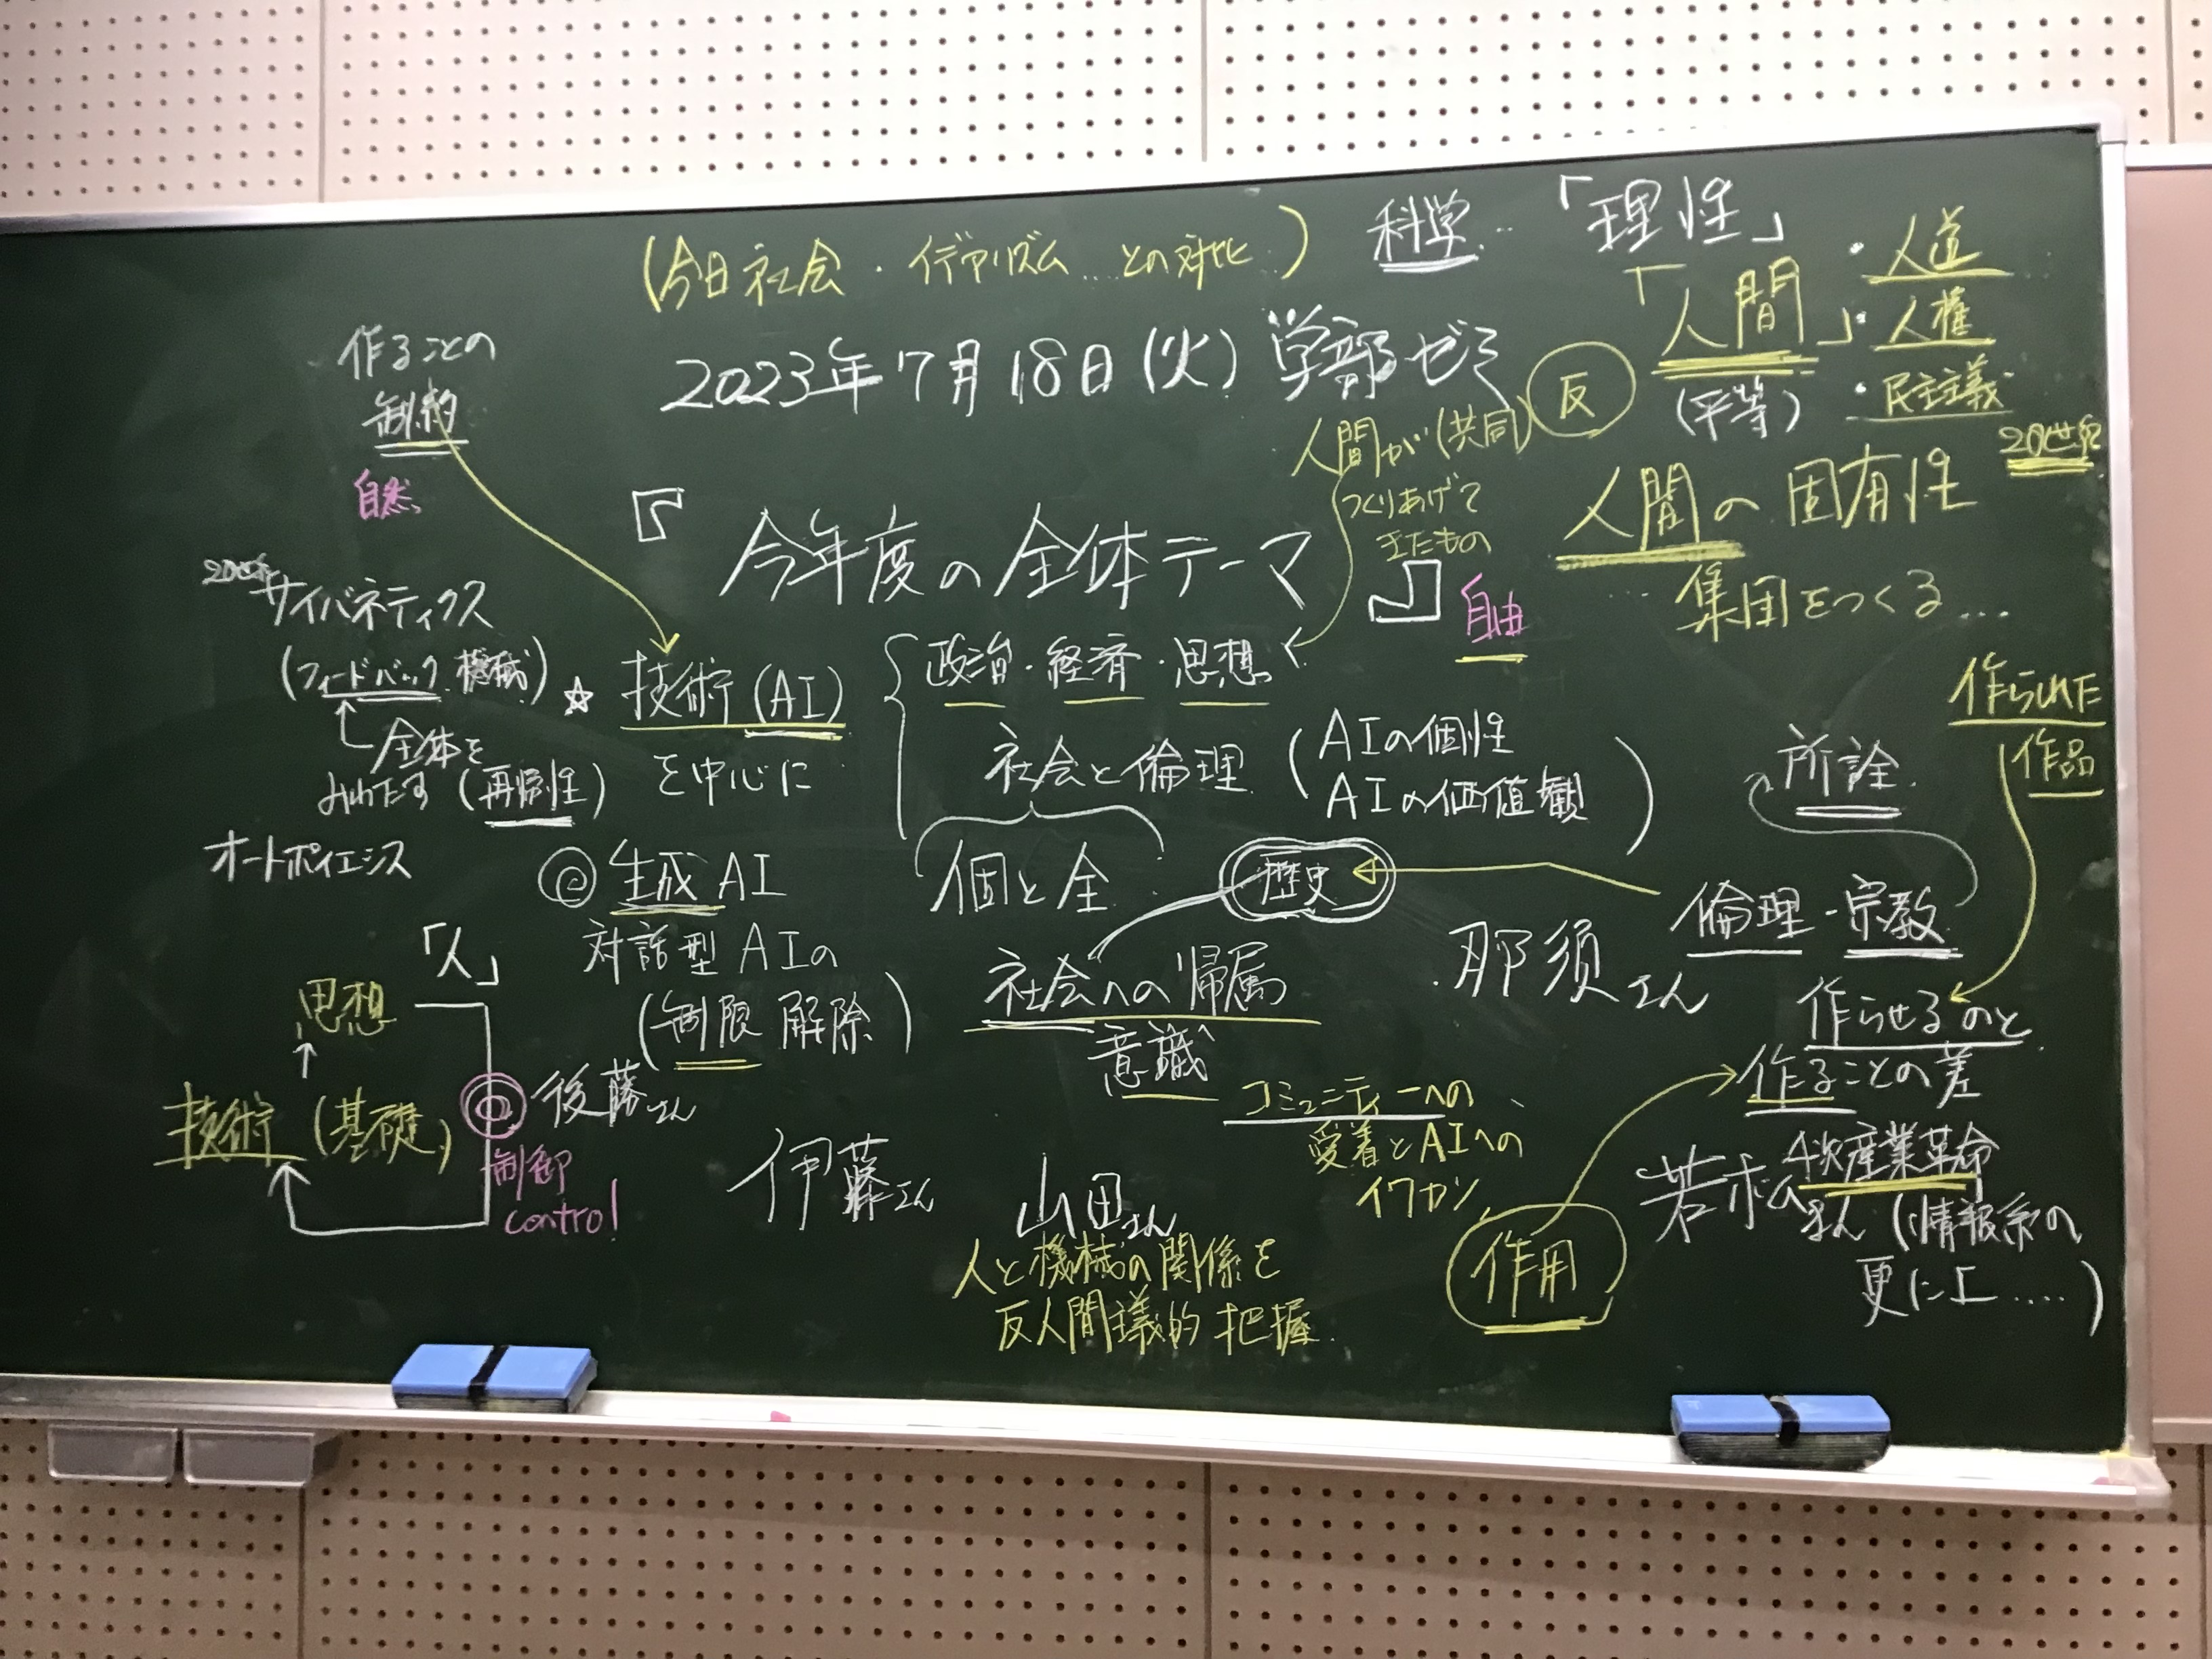 (今日社会・イデアリズム…との対比…)
科学…「理性」
「人間」
(平等)
・人道
・人権
・民主主義
20世紀
反
2023年7月18日(火)学部ゼミ
作ることの
制約
自然
人間が(共同)
つくりあげて
きたもの
人間の固有性
…集団をつくる…
『今年度の全体テーマ』
自由
20世紀
サイバネティクス
(フィードバック機械)
全体を
みわたす(再帰性)
オートポイエシス
☆技術(AI)
を中心に
政治・経済・思想
社会と倫理
(AIの個性
AIの価値観)
個と全
歴史
所詮
作られた
作品
倫理・宗教
◎生成AI
対話型AIの
(制限解除)
社会への帰属
意識
那須さん
作らせるのと
作ることの差
「人」
思想
技術(基礎)
後藤さん
制御
control
伊藤さん
コミュニティーへの
愛着とAIへの
イワカン
山田さん
人と機械の関係を
反人間主義的把握
作用
4次産業革命
若松さん(情報系の
更に上……)